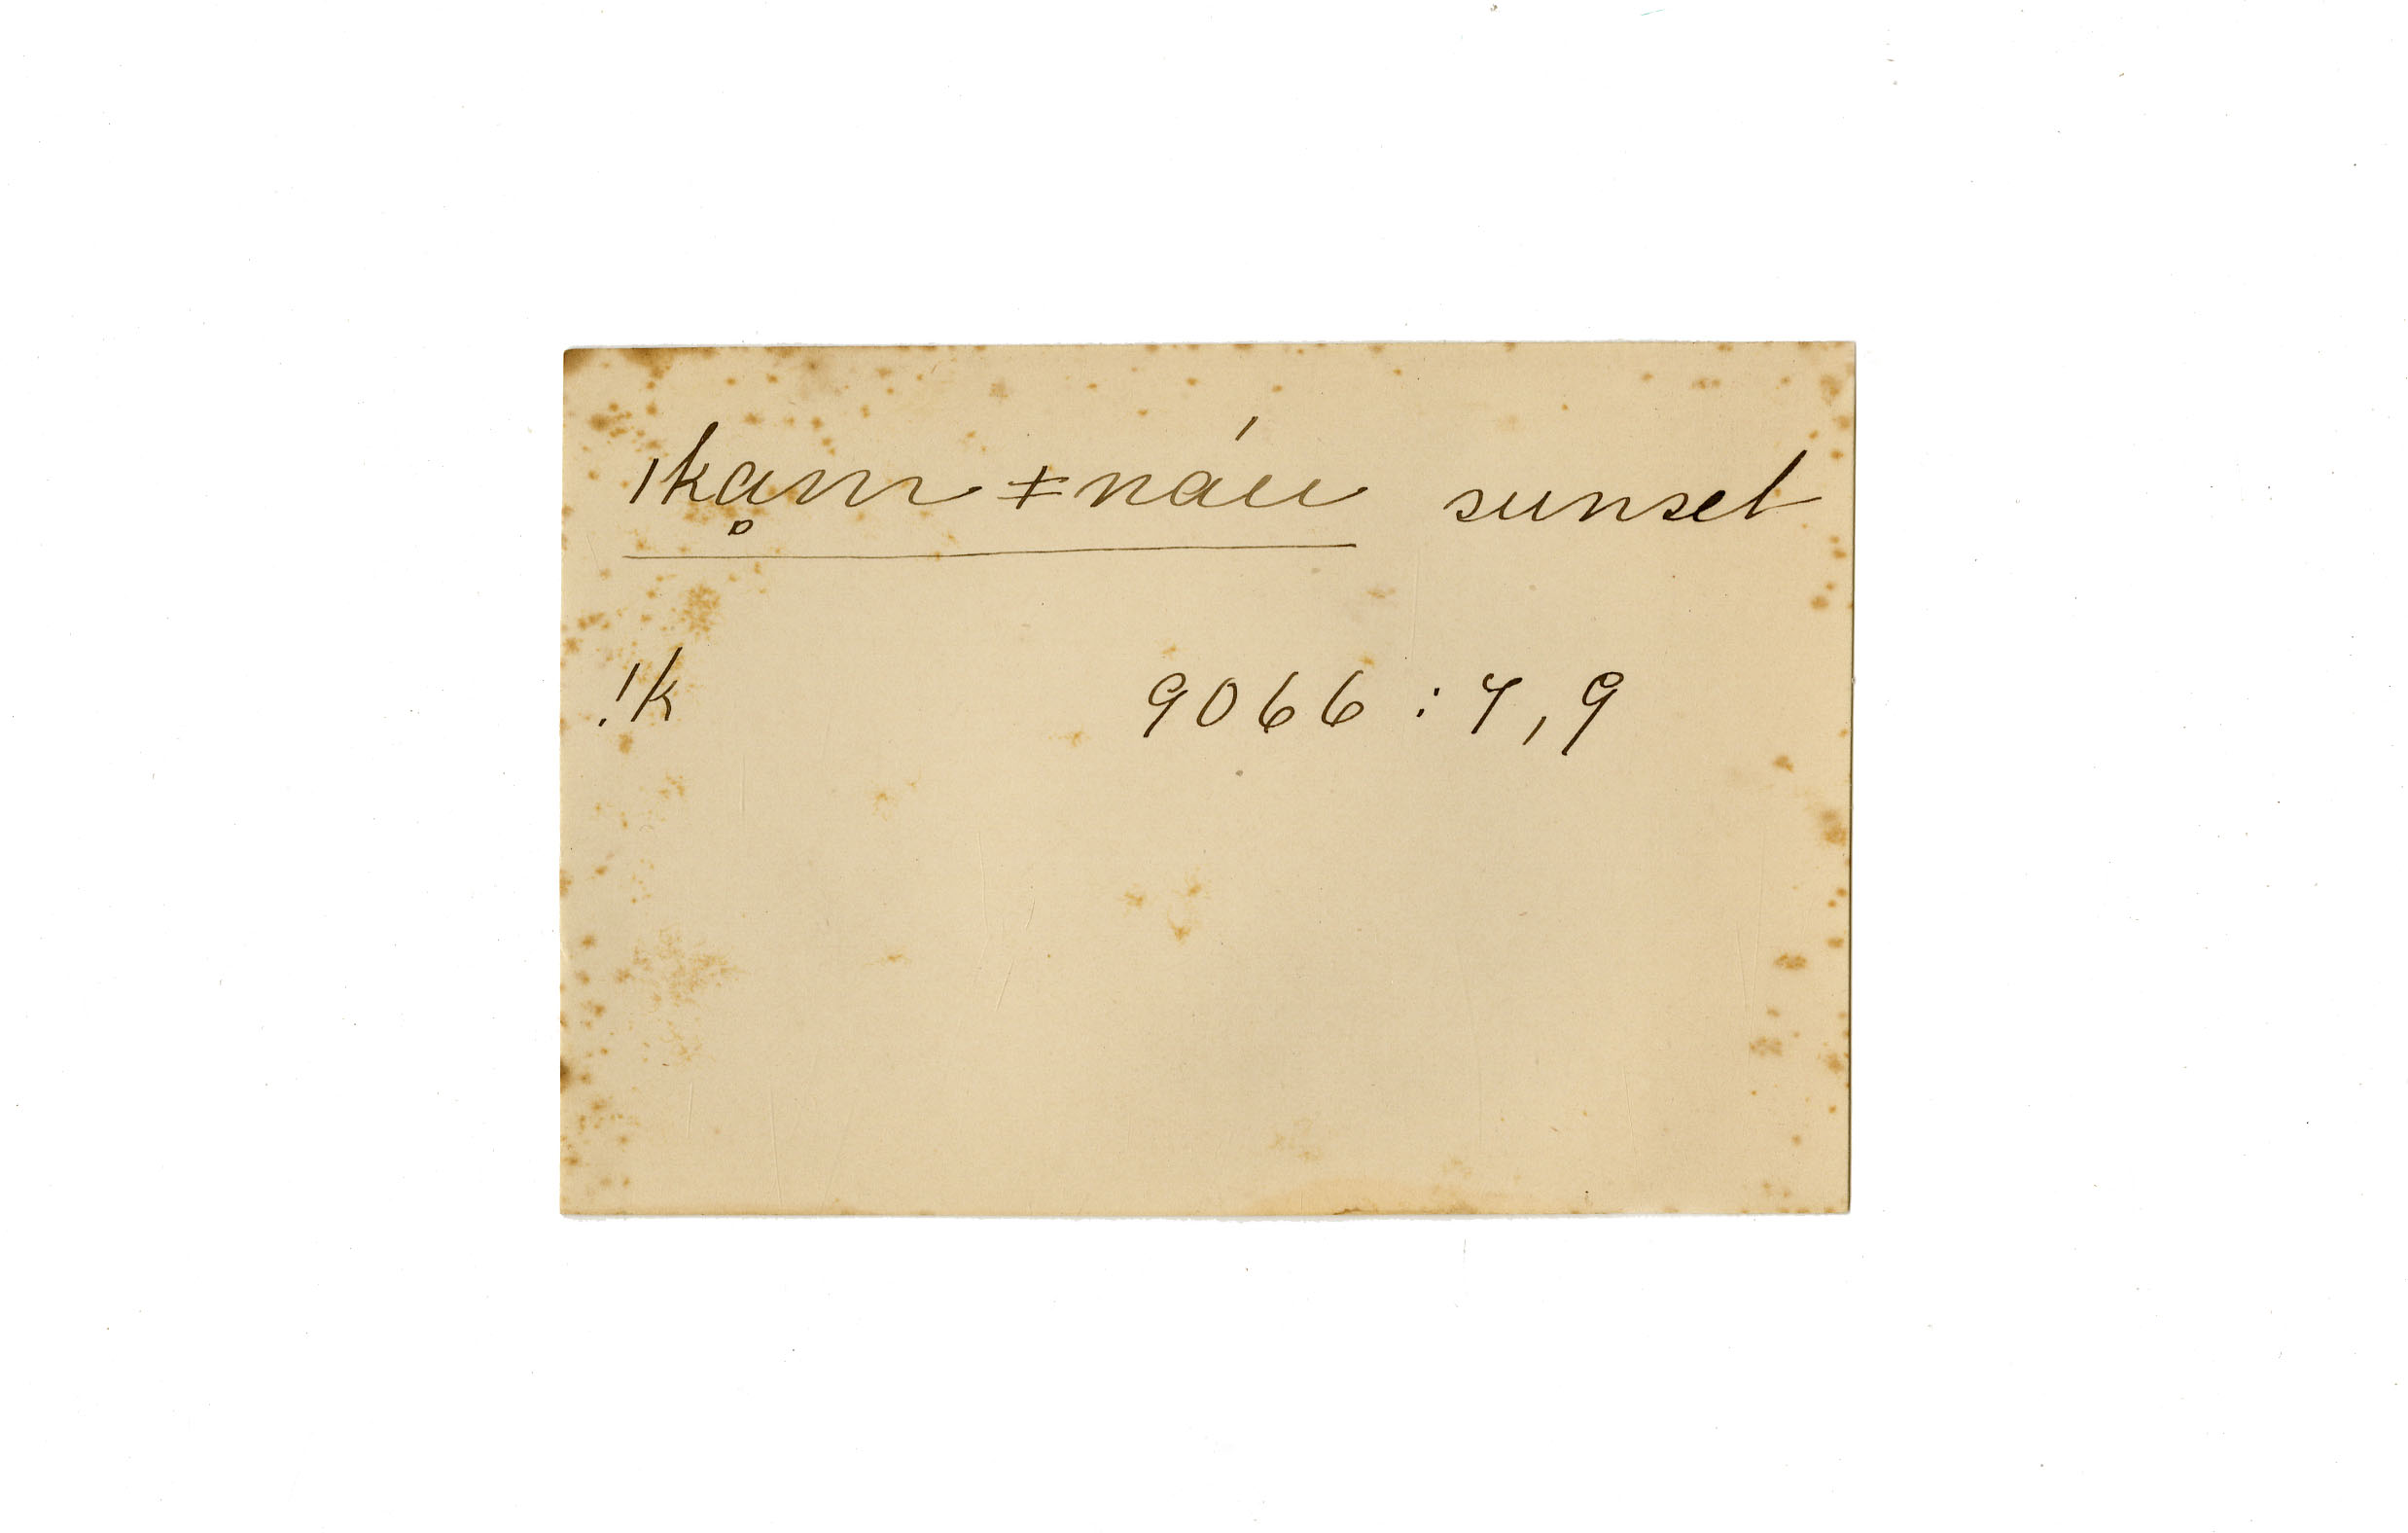 ǀkḁm ǂnáu sunset
!k 9066 : 7, 9